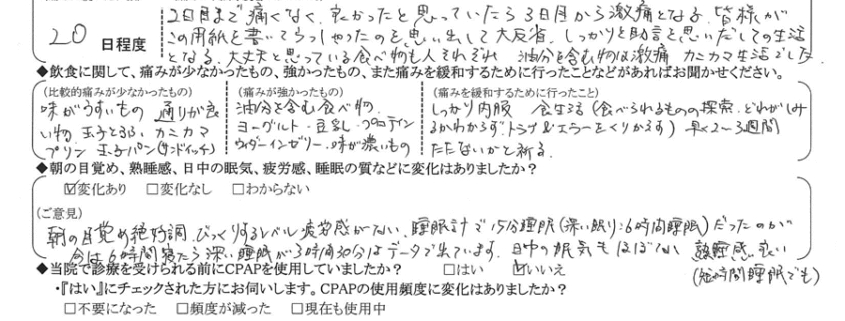 2日目まで痛くなく、良かったと思っていたら3日目から激痛となる。皆様が
20 日程度 この用紙を書いてらっしゃったのを思い出して大反省。しっかりを助言を思いだしての生活
となる。大丈夫と思っている食べ物も人それぞれ 油分を含む物は激痛 カニカマ生活でした
◆飲食に関して、痛みが少なかったもの、強かったもの、また痛みを緩和するために行ったことなどがあればお聞かせください。
(比較的痛みが少なかったもの) (痛みが強かったもの) (痛みを緩和するために行ったこと)
味がうすいもの 通りが良い物 玉子とうふ、カニカマ プリン 玉子パン(サンドイッチ)
油分を含む食べ物、ヨーグルト・豆乳・プロテイン ウイダーインゼリー・味が濃いもの
しっかり内服 食生活(食べられるものの探索、どれがしみるかわからず、トライ&エラーをくりかえす) 早く2〜3週間たたないかと祈る。
◆朝の目覚め、熟睡感、日中の眠気、疲労感、睡眠の質などに変化はありましたか?
☑変化あり □変化なし □わからない
(ご意見)
朝の目覚め絶好調、びっくりするレベル疲労感がない、睡眠計で15分睡眠(深い眠り:6時間睡眠)だったのが
今は6時間寝たら深い睡眠が3時間30分はデータで出ています。日中の眠気もほぼない 熟睡感良い
(短時間睡眠でも)
◆当院で診療を受けられる前にCPAPを使用していましたか? □はい ☑いいえ
・『はい』にチェックされた方にお伺いします。CPAPの使用頻度に変化はありましたか?
□不要になった □頻度が減った □現在も使用中